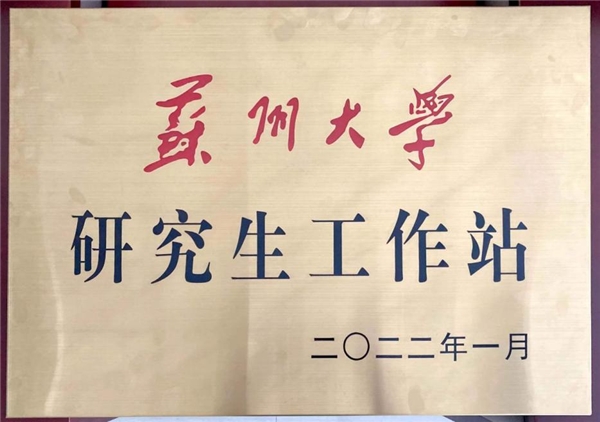 蘇州大學
研究生工作站
二〇二二年一月